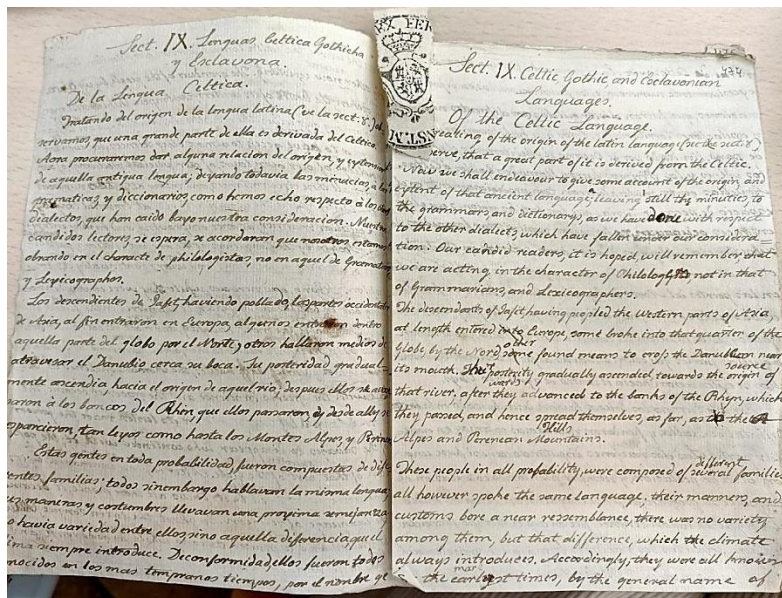 Sect. IX. Lenguas Celtica Gothicha
y Esclavona.
De la Lengua Celtica.
Tratando del origen de la lengua latina (ve la sect. 8.) ob
servamos, que una grande parte de ella es derivada del Celtico.
Aora procuraremos dar alguna relacion del origen, y extension
de aquella antigua lengua; dexando todavia las minucias, a las
gramaticas, y diccionarios, como hemos echo respecto à los otros
dialectos, que han caido baxo nuestra consideracion. Nuestros
candidos lectores, se espera, se acordaran que nosotros estamos
obrando en el character de philologistas, no en aquel de Gramaticos
y Lexicographos.
Los descendientes de Jafet, haviendo poblado, las partes occidentales
de Asia, al fin entraron en Europa, algunos entraron dentro
aquella parte del globo por el Norte, otros hallaron medios de
atravesar el Danubio cerca su boca. Su posteridad gradual
mente ascendia, hacia el origen de aquel rio, despues ellos se
saron à los bancos del Rhin, que ellos passaron, y desde alli se
esparcieron, tan leyos como hasta los Montes Alpes y
Estas gentes en toda probabilidad, fueron compuestas de dife
rentes familias, todos sinembargo hablavan la misma lengua,
sus maneras y costumbres llevavan una proxima semejanza,
no havia variedad entre ellos sino aquella diferencia, que el
clima siempre introduce. Deconformidad ellos fueron todos
conocidos en los mas tempranos tiempos, por el nombre ge
474
Sect. IX. Celtic Gothic and Esclavonian
Languages.
Of the Celtic Language.
Treating, of the origin of the latin language (see the sect. 8.)
serve, that a great part of it is derived from the Celtic.
Now we shall endeavour to give some account of the origin, and
extent of that ancient language, leaving still the minuties, to
the grammars, and dictionarys, as we have done with respect
to the other dialects, which have fallen under our considera
tion. Our candid readers, it is hoped, will remember, that
we are acting in the character of Philologists not in that
of Grammarians, and Lexicographers.
The descendants of Jafet having peopled the western parts of Asia,
at length entered into Europe, some broke into that quarter of the
globe, by the Nord, other some found means to cross the Danub near
its mouth. Their posterity gradually ascended, towards the origin source of
that river, after wards they advanced to the banks of the Rhyn, which
they passed, and hence spread themselves, as far, as the
Alpes and Perenean Hills Mountains.
These people in all probability, were composed of different several families
all however spoke the same language, their manners, and
customs bore a near ressemblance, there was no variety
among them, but that difference, which the climate
always introduces. Accordingly, they were all known
the earlyest times, by the general name of